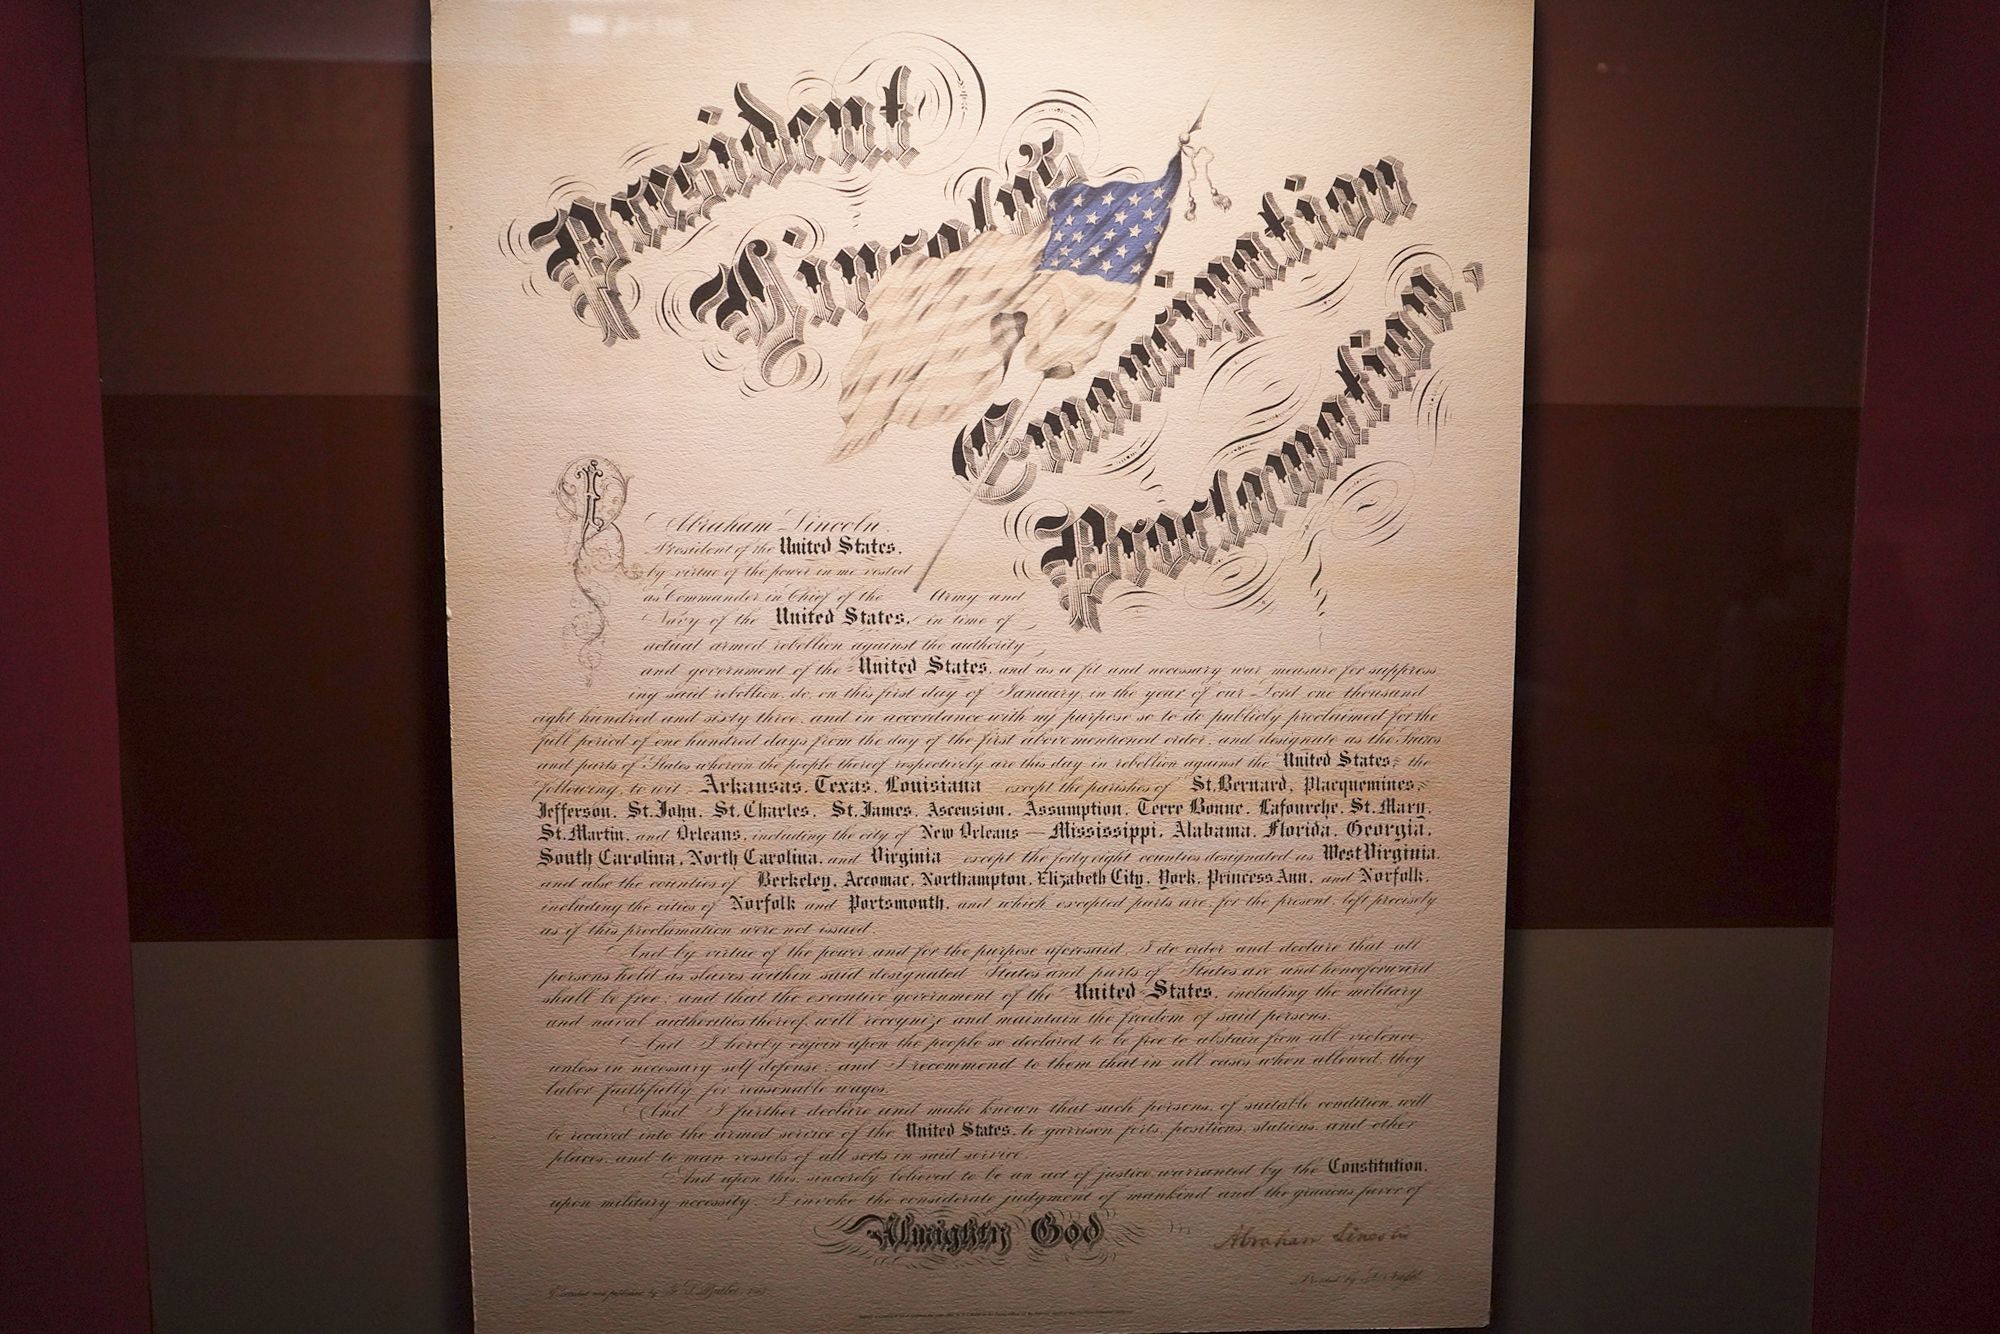 President
Lincoln's
Emancipation
Proclamation.
I
Abraham Lincoln.
President of the United States.
by virtue of the power in me vested
as Commander in Chief of the Army and
Navy of the United States, in time of
actual armed rebellion against the authority
and government of the United States, and as a fit and necessary war measure for suppress
ing said rebellion, do, on this first day of January, in the year of our Lord one thousand
eight hundred and sixty three, and in accordance with my purpose so to do publicly proclaimed for the
full period of one hundred days from the day of the first above mentioned order, and designate as the States
and parts of States wherein the people thereof respectively are this day in rebellion against the United States, the
following, to wit, Arkansas, Texas, Louisiana except the parishes of St. Bernard, Placquemines,
Jefferson, St. John, St. Charles, St. James, Ascension, Assumption, Terre Bonne, Lafourche, St. Mary,
St. Martin, and Orleans, including the city of New Orleans — Mississippi, Alabama, Florida, Georgia,
South Carolina, North Carolina, and Virginia except the forty eight counties designated as West Virginia,
and also the counties of Berkeley, Accomac, Northampton, Elizabeth City, York, Princess Ann, and Norfolk,
including the cities of Norfolk and Portsmouth, and which excepted parts are, for the present, left precisely
as if this proclamation were not issued.
And by virtue of the power and for the purpose aforesaid, I do order and declare that all
persons held as slaves within said designated States and parts of States are and henceforward
shall be free; and that the executive government of the United States, including the military
and naval authorities thereof, will recognize and maintain the freedom of said persons.
And I hereby enjoin upon the people so declared to be free to abstain from all violence,
unless in necessary self defense; and I recommend to them that in all cases when allowed, they
labor faithfully for reasonable wages.
And I further declare and make known that such persons, of suitable condition, will
be received into the armed service of the United States, to garrison forts, positions, stations, and other
places, and to man vessels of all sorts in said service.
And upon this, sincerely believed to be an act of justice warranted by the Constitution,
upon military necessity, I invoke the considerate judgment of mankind and the gracious favor of
Almighty God
Abraham Lincoln